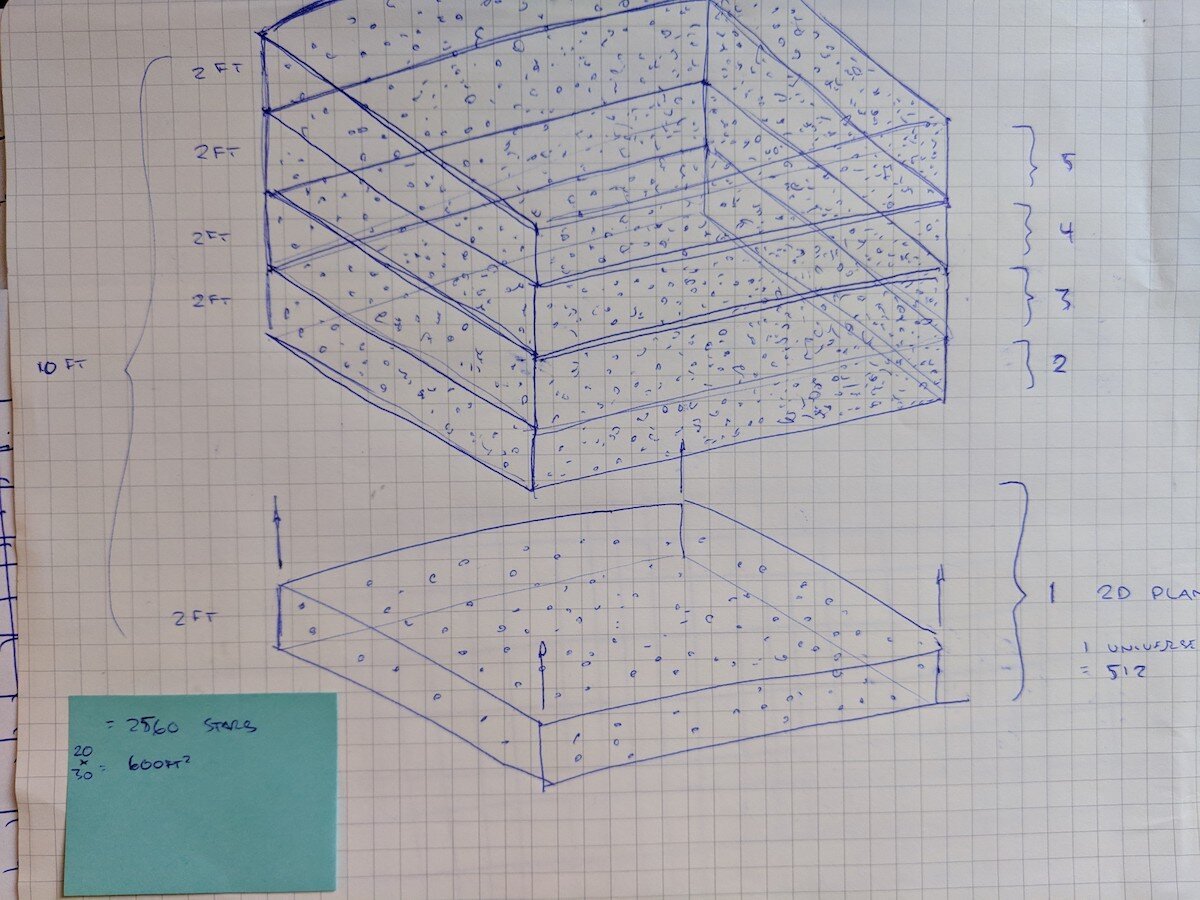 2 FT
2 FT
2 FT
2 FT
10 FT
2 FT
5
4
3
2
1 2D PLAN
1 UNIVERSE
= 512
= 2560 STARS
20
x
30
= 600FT²